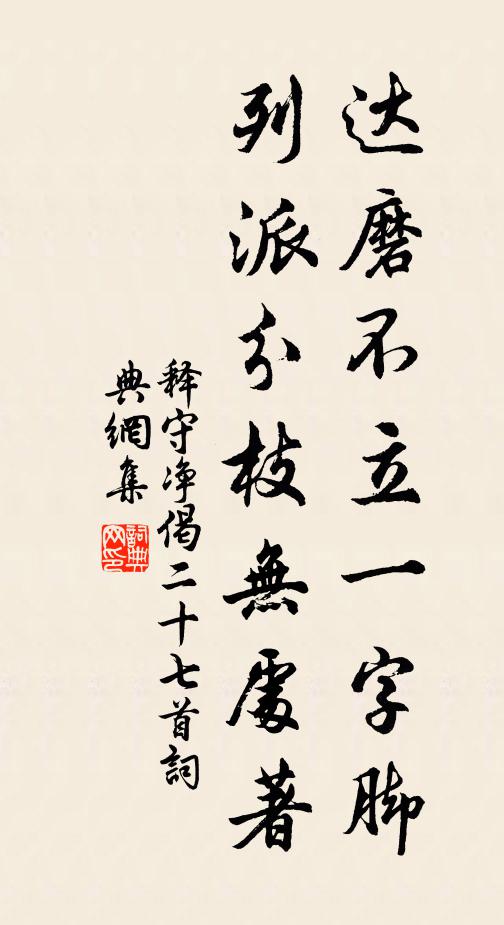 达磨不立一字脚
列派分枝無處著
释守净偈二十七首詞
典網集
詞典
网印